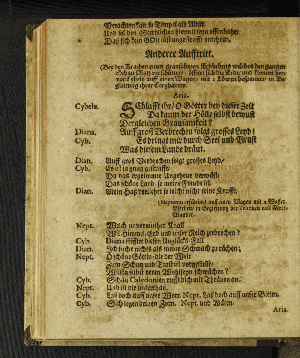 Verachten kan so Tempel als Altar.
Und sol den Sterblichen hiemit seyn offenbahr/
Das sich kein GOtt
Anderer Aufftritt.
(Bey den Krachen eines grausamen Erdbebens/ welches den gantzen
Schau-Platz erschüttert/ öffnet sich die Erde und kommt her-
vor Cybele auff einen Wagen/ mit 2. Löwen bespannet/ in Be-
gleitung ihrer Corybanten.
Aria.
Cybele. Schlafft ihr/ O Götter bey dieser Zeit
Da kaum der Hölle selbst bewust
Dergleichen Grausamkeit?
Diana. Auff groß Verbrechen folget grosses Leyd/
Cyb. Es dringt mir durch Seel und Brust
Was diesem Lande dräut.
Dian. Auff groß Verbrechen folget grosses Leyd/
Cyb. Es ist ja gnug gestrafft/
Da das ergrimmte Ungeheur verwüst
Das schöne Land/ so meine Freude ist.
Dian. Mein Haß verliehrt so leicht nicht seine Krafft.
(Neptunus erscheinet auf seinen Wagen mit 2. Wasser-
Pferden/ in Begleitung der Tritonen und Meer-
Wunder.
Nept. Welch ungemeiner Knall
Will Himmel/ Erd und unser Reich zerbrechen?
Cyb. Diana stifftet diesen Unglücks-Fall
Dian. Ich suche nichts als meine Schmach zu rächen/
Nept. O schöne Göttin/ die der Welt
Zum Schutz und Trost ist vorgestellt/
Wiltu selbst deren Wohlseyn schwächen?
Cyb. Schau Calydonien netzt dich mit Thränen an.
Nept. Und ist dir unterthan.
Cyb. Laß doch auff unser Wort Nept. Laß doch auff unser Bitten.
Cyb. Schlagen deinen Zorn. Nept. und Wüten.
Aria.